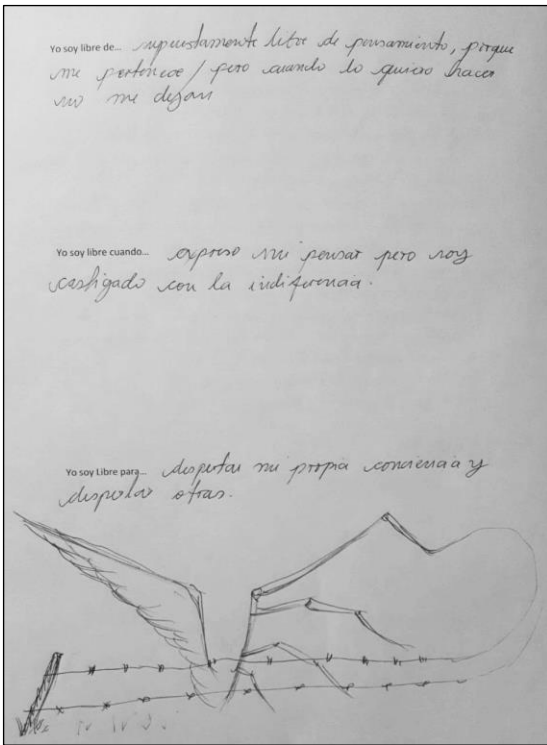 Yo soy libre de... supuestamente libre de pensamiento, porque
me pertenece / pero cuando lo quiero hacer
no me dejan
Yo soy libre cuando... expreso mi pensar pero soy
castigado con la indiferencia.
Yo soy Libre para... despertar mi propia conciencia y
despertar otras.